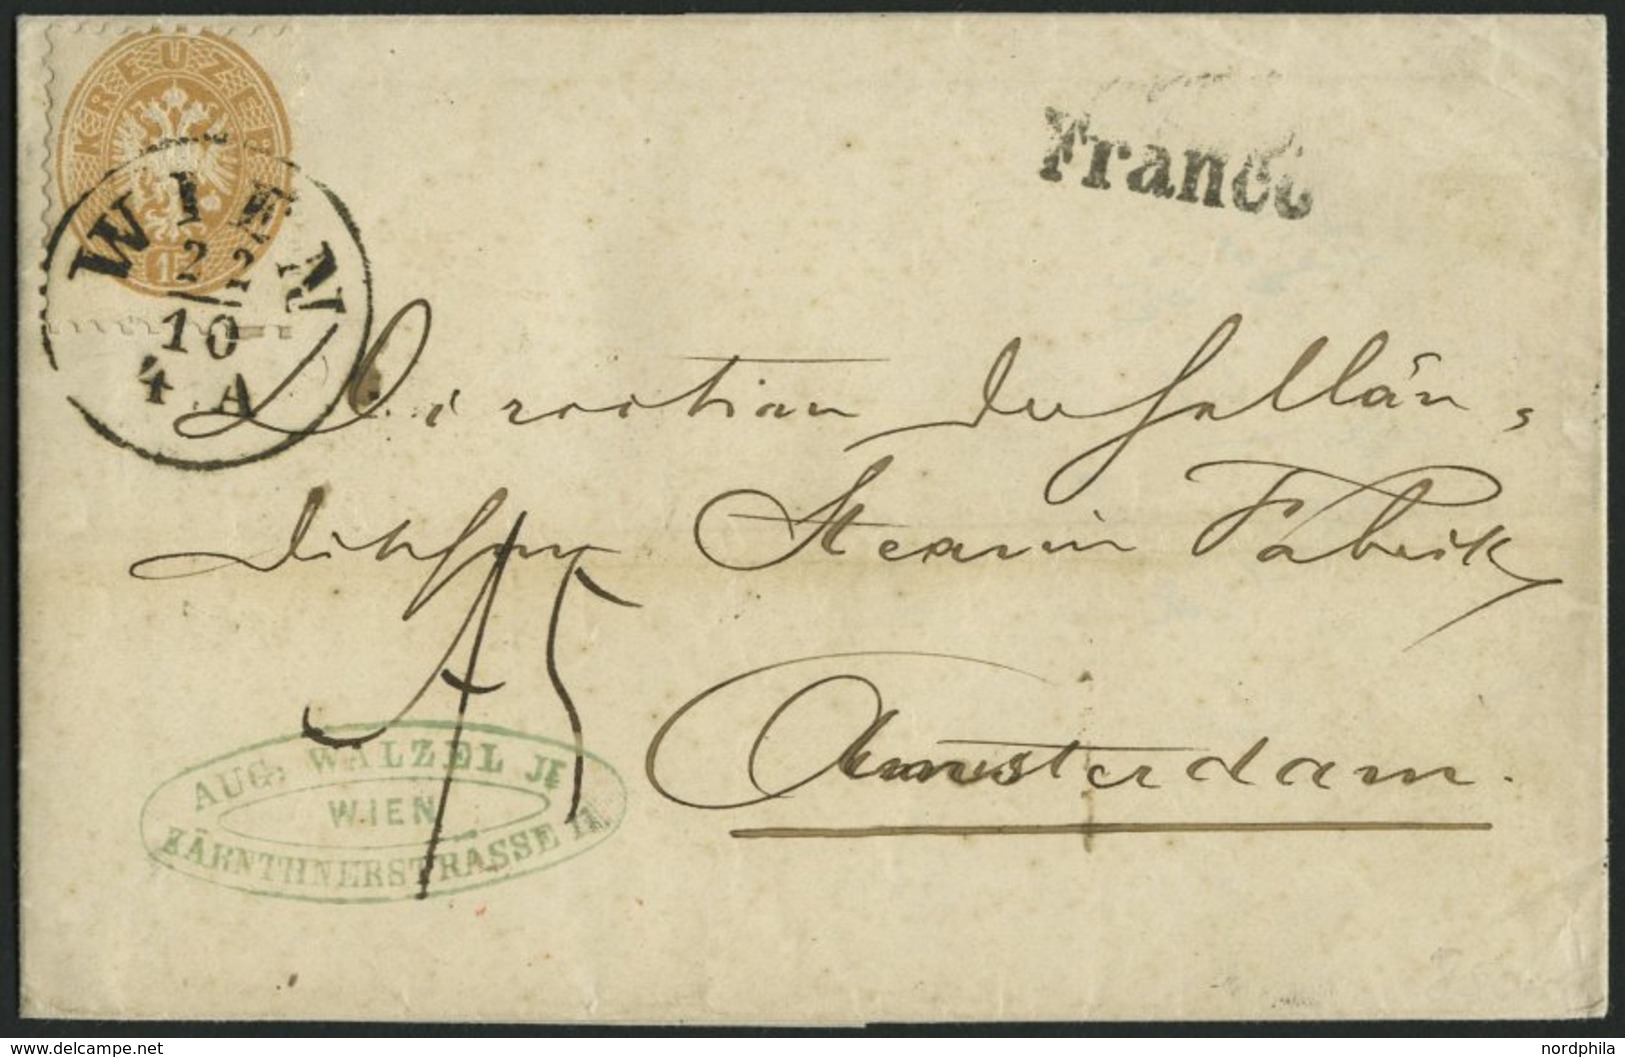 KREUZER
15
WIEN
22
10
4. A
Franco
Direction der Hollän-
dischen Stearin Fabrik
Amsterdam.
15
AUG. WALZEL JE
WIEN
KÄRNTHNERSTRASSE 11
delcampe.net
nordphila